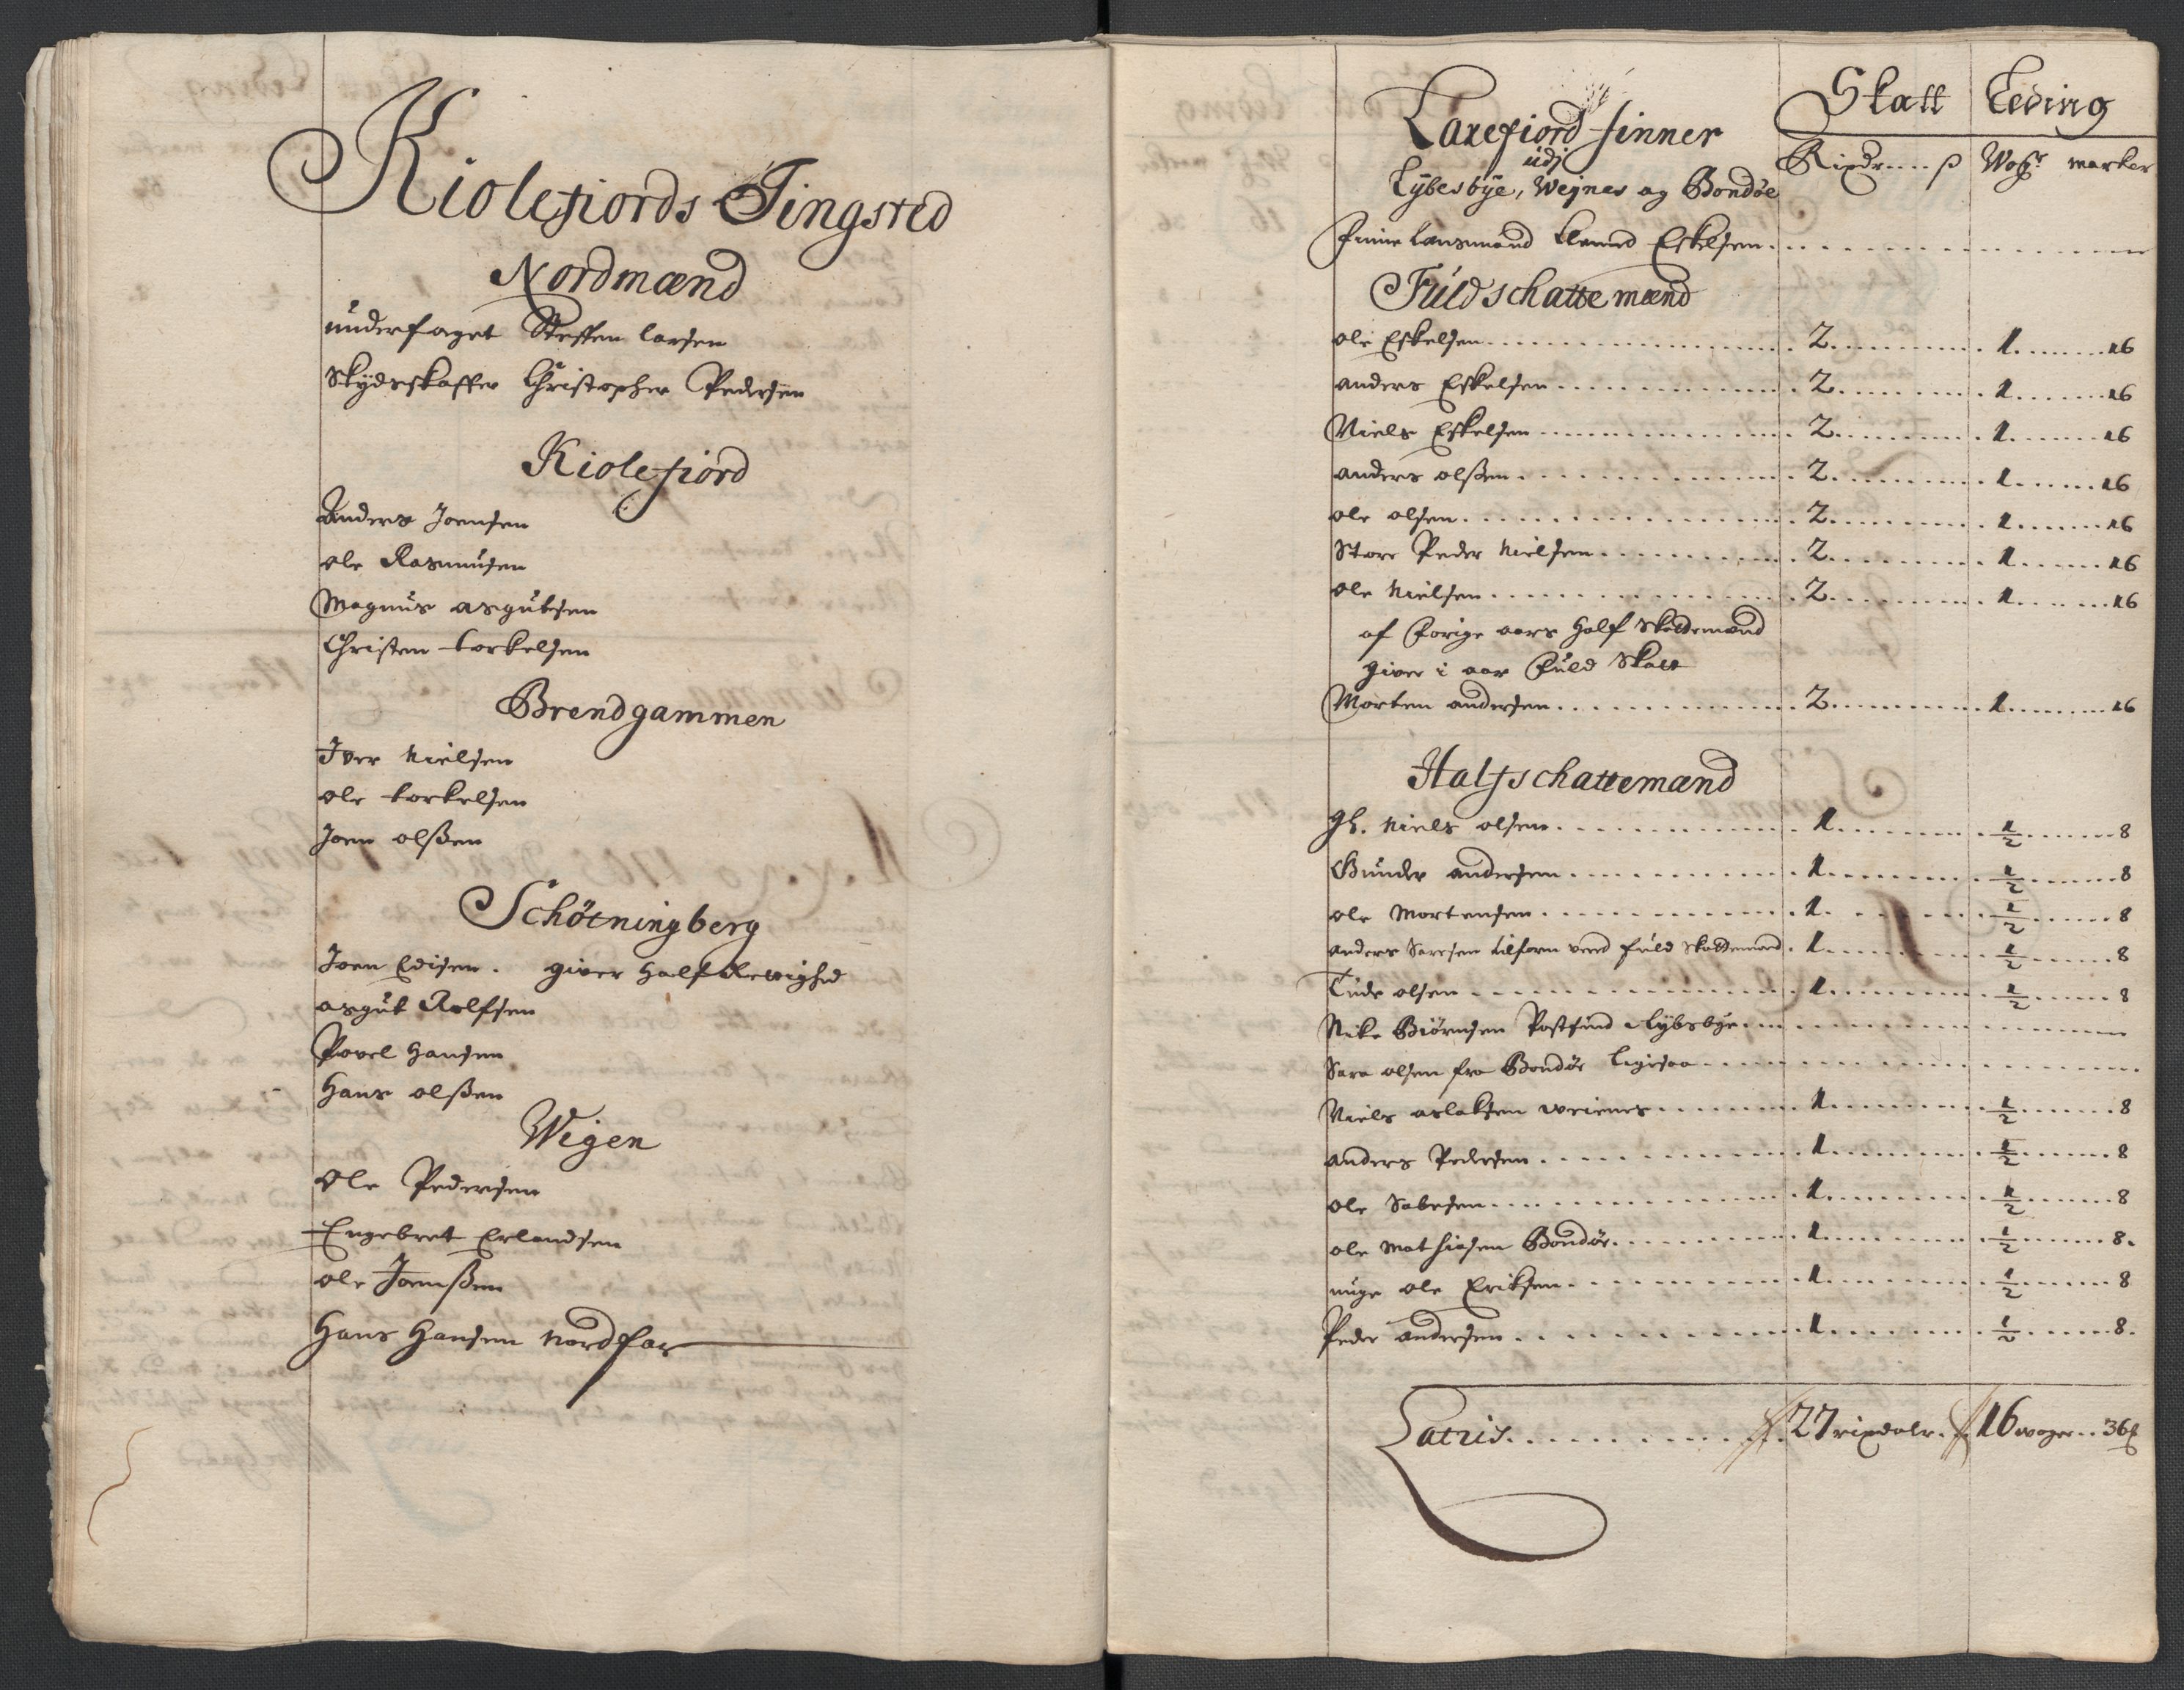 Kiolefiords Tingsted
Nordmænd
underfoget Steffen larsen
Skydsskaffer Christopher Pedersen
Kiolefiord
Anders Joensen
ole Rasmusen
Magnus asgutsen
Christen torkelsen
Brendgammen
Iver Nielsen
ole torkelsen
Joen olßen
Schötningberg
Iven Edisen . giver half Rettighed
asgut Rolfsen
Povel Hansen
Hans olßen
Wigen
Ole Pedersen
Engebret Erlandsen
ole Joenßen
Hans Hansen Nordfar
Skatt Leding
Laxefiord finner
udj
Lybesbye, Wejnes og Bondøe
Rixdr .... ß Wog marker
Finne Lansmand Eskelsen
Fuldschattemænd
ole Eskelsen 2 1 16
anders Eskelsen 2 1 16
Niels Eskelsen 2 1 16
anders olßen 2 1 16
ole olsen 2 1 16
Store Peder Nielsen 2 1 16
ole Nielsen 2 1 16
af forige aars half Skattemænd
giver i aar fuld Skatt
Morten andersen 2 1 16
Halfschattemænd
gl. Niels olsen 1 1/2 8
Gunder andersen 1 1/2 8
ole Mortensen 1 1/2 8
anders Saresen tilforn verd fuld Skattemand 1 1/2 8
Tude olsen 1 1/2 8
Nike Biörnsen Postfind i Lybsbye
Sara olsen fra Bondöe ligesaa
Niels aslaksen weienes 1 1/2 8
anders Pedersen 1 1/2 8
ole Sabesen 1 1/2 8
ole Mathiasen Bondöe 1 1/2 8.
unge ole Eriksen 1 1/2 8
Peder andersen 1 1/2 8.
Latris 27 rixdaler 16 woger .. 36